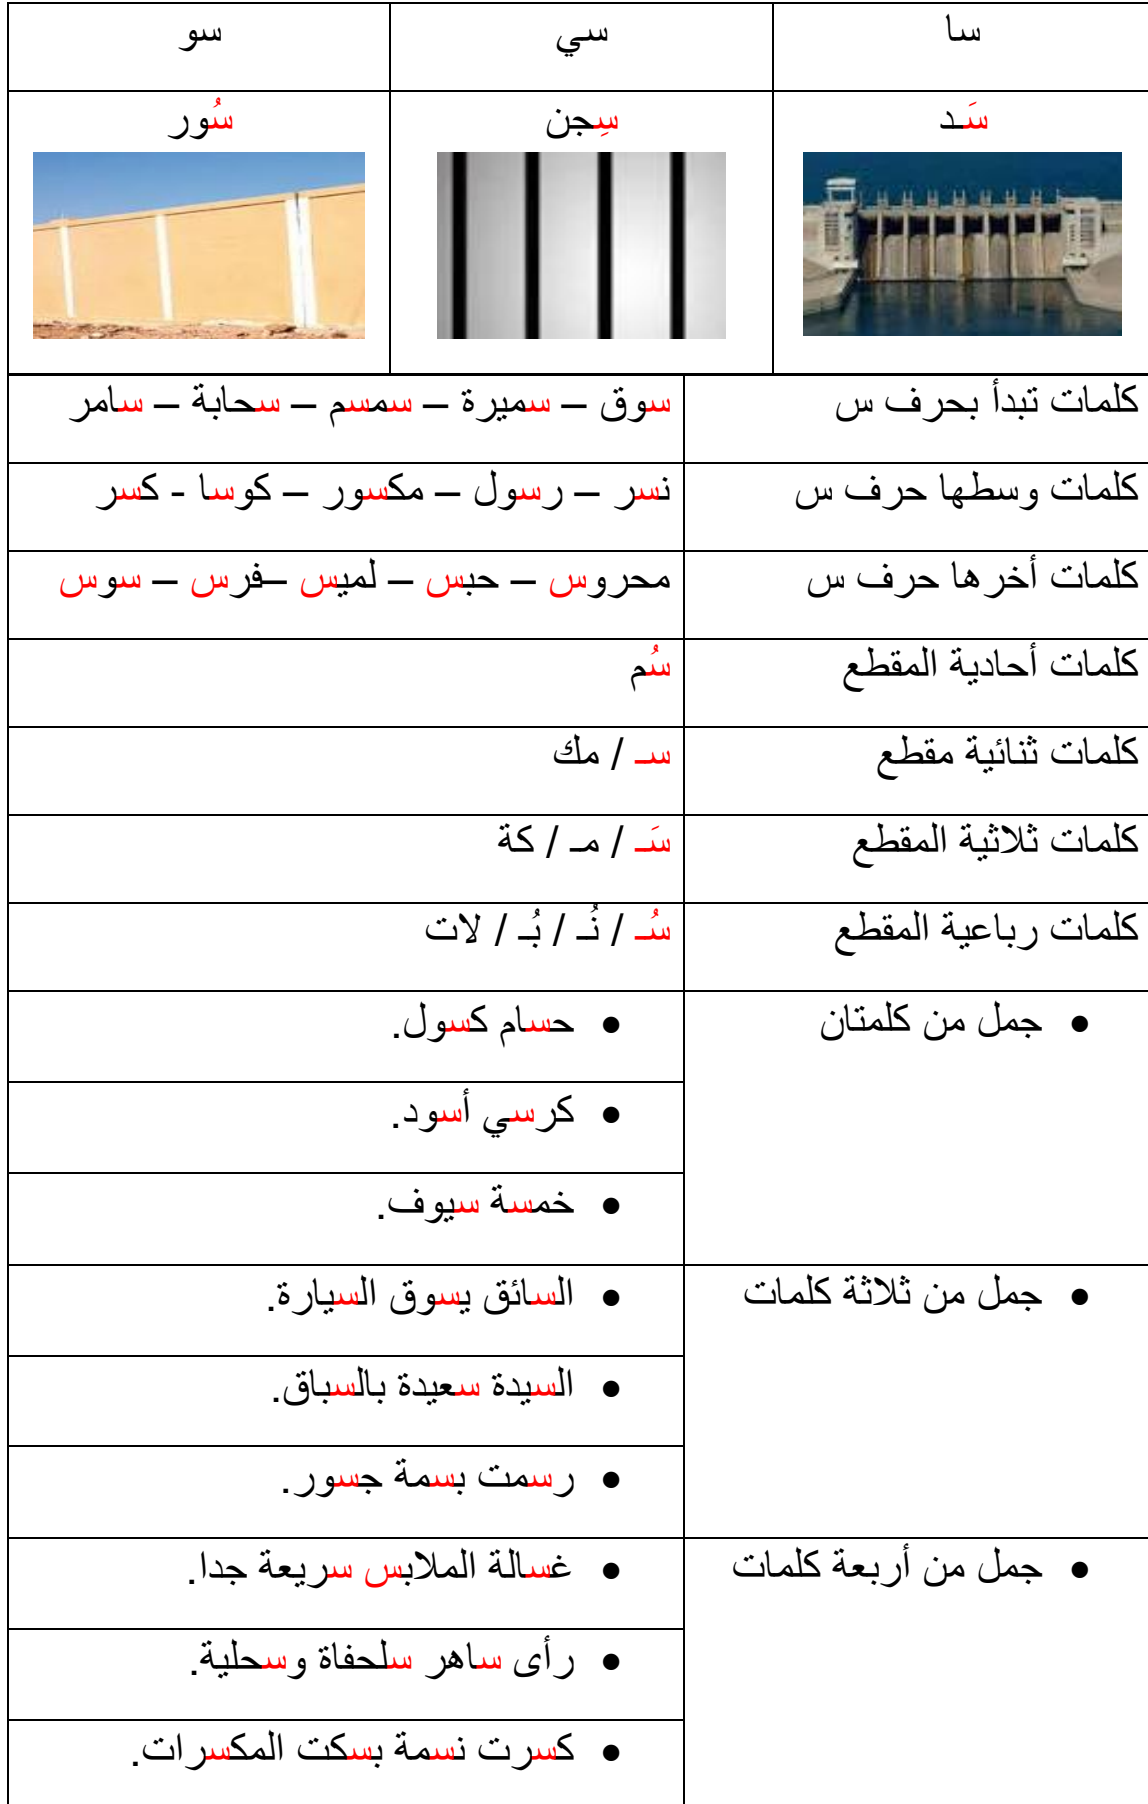 سا سي سو
سَـد سِجن سُور
كلمات تبدأ بحرف س سوق – سميرة – سمسم – سحابة – سامر
كلمات وسطها حرف س نسر – رسول – مكسور – كوسا - كسر
كلمات أخرها حرف س محروس – حبس – لميس –فرس – سوس
كلمات أحادية المقطع سُم
كلمات ثنائية مقطع سـ / مك
كلمات ثلاثية المقطع سَـ / مـ / كة
كلمات رباعية المقطع سُـ / نُـ / بُـ / لات
• جمل من كلمتان • حسام كسول.
• كرسي أسود.
• خمسة سيوف.
• جمل من ثلاثة كلمات • السائق يسوق السيارة.
• السيدة سعيدة بالسباق.
• رسمت بسمة جسور.
• جمل من أربعة كلمات • غسالة الملابس سريعة جدا.
• رأى ساهر سلحفاة وسحلية.
• كسرت نسمة بسكت المكسرات.